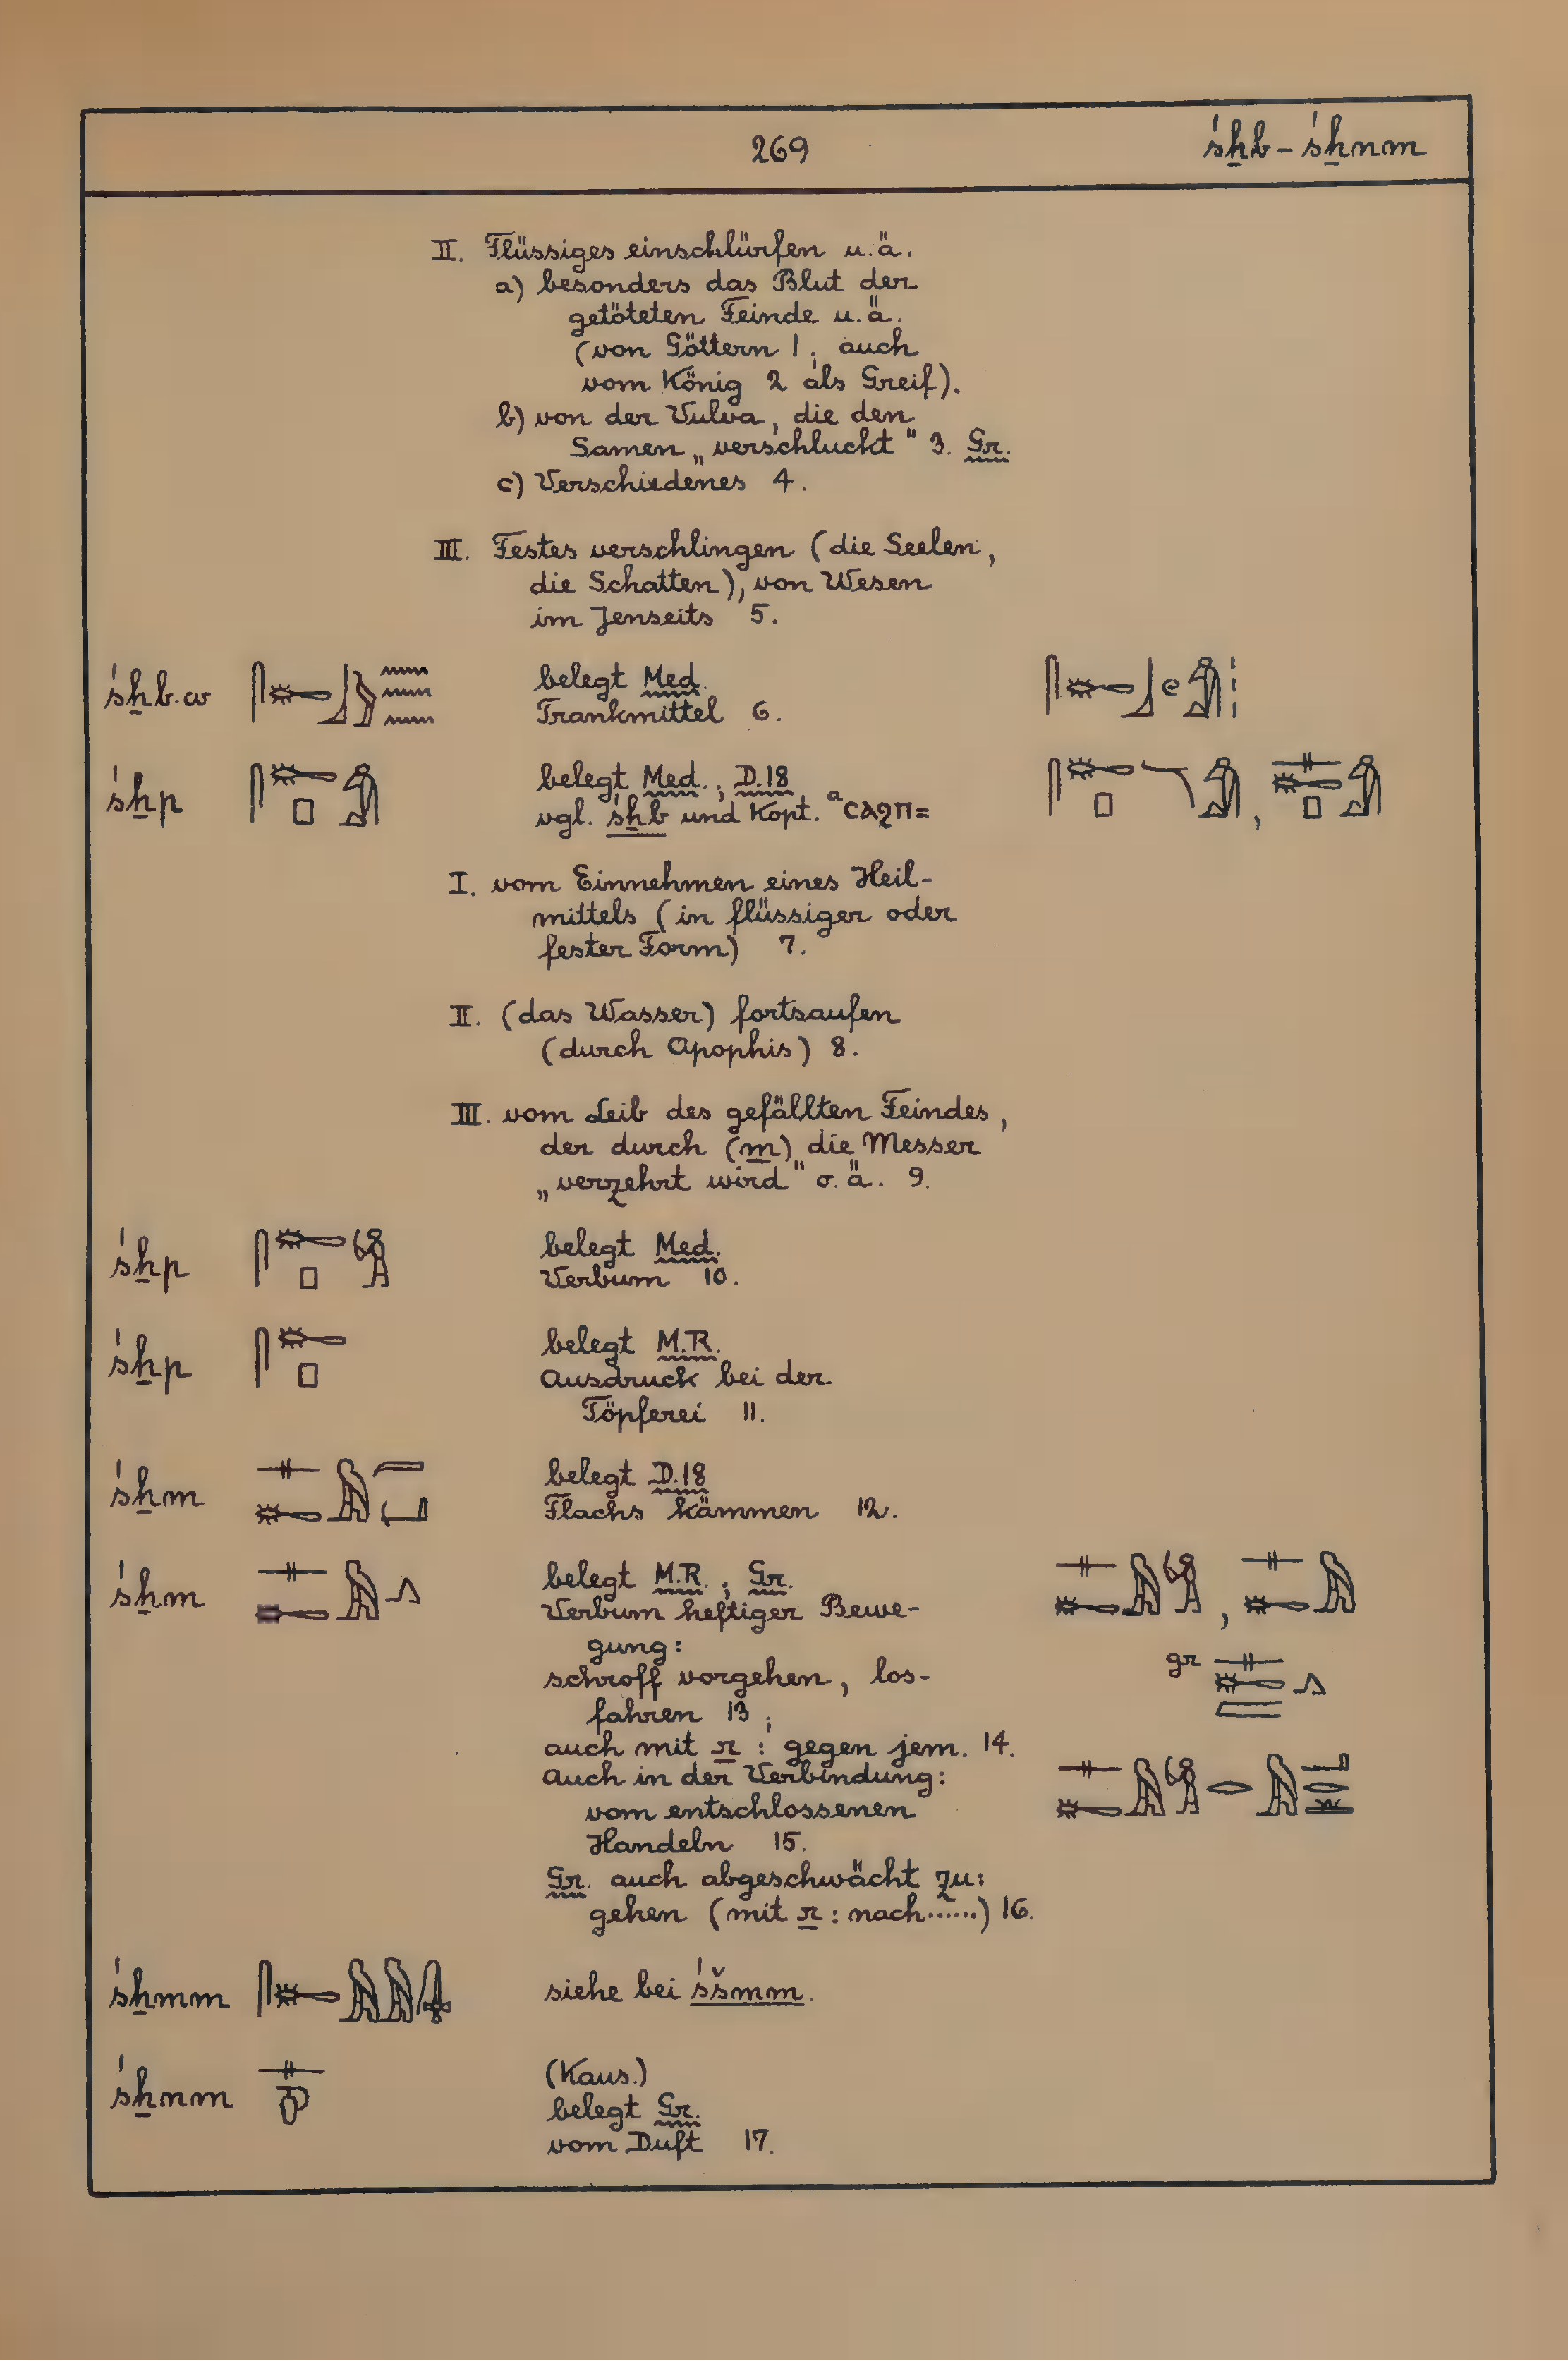 269
ś͟hb – ś͟hnm
II. Flüssiges einschlürfen u.ä.
a) besonders das Blut der
getöteten Feinde u.ä.
(von Göttern 1; auch
vom König 2 als Greif).
b) von der Vulva, die den
Samen „verschluckt" 3. Gr.
c) Verschiedenes 4.
III. Festes verschlingen (die Seelen,
die Schatten), von Wesen
im Jenseits 5.
śẖb.w belegt Med.
Trankmittel 6.
śẖp belegt Med.; D.18
vgl. śẖb und Kopt. ᵃⲥⲁϩⲡ=
I. vom Einnehmen eines Heil-
mittels (in flüssiger oder
fester Form) 7.
II. (das Wasser) fortsaufen
(durch Apophis) 8.
III. vom Leib des gefällten Feindes,
der durch (m) die Messer
„verzehrt wird" o.ä. 9.
śẖp belegt Med.
Verbum 10.
śẖp belegt M.R.
Ausdruck bei der
Töpferei 11.
śẖm belegt D.18
Flachs kämmen 12.
śẖm belegt M.R.; Gr.
Verbum heftiger Bewe-
gung:
schroff vorgehen, los-
gr
fahren 13;
auch mit r: gegen jem. 14.
Auch in der Verbindung:
vom entschlossenen
Handeln 15.
Gr. auch abgeschwächt zu:
gehen (mit r: nach......) 16.
śẖmm siehe bei śšmm.
śẖnm (Kaus.)
belegt Gr.
vom Duft 17.